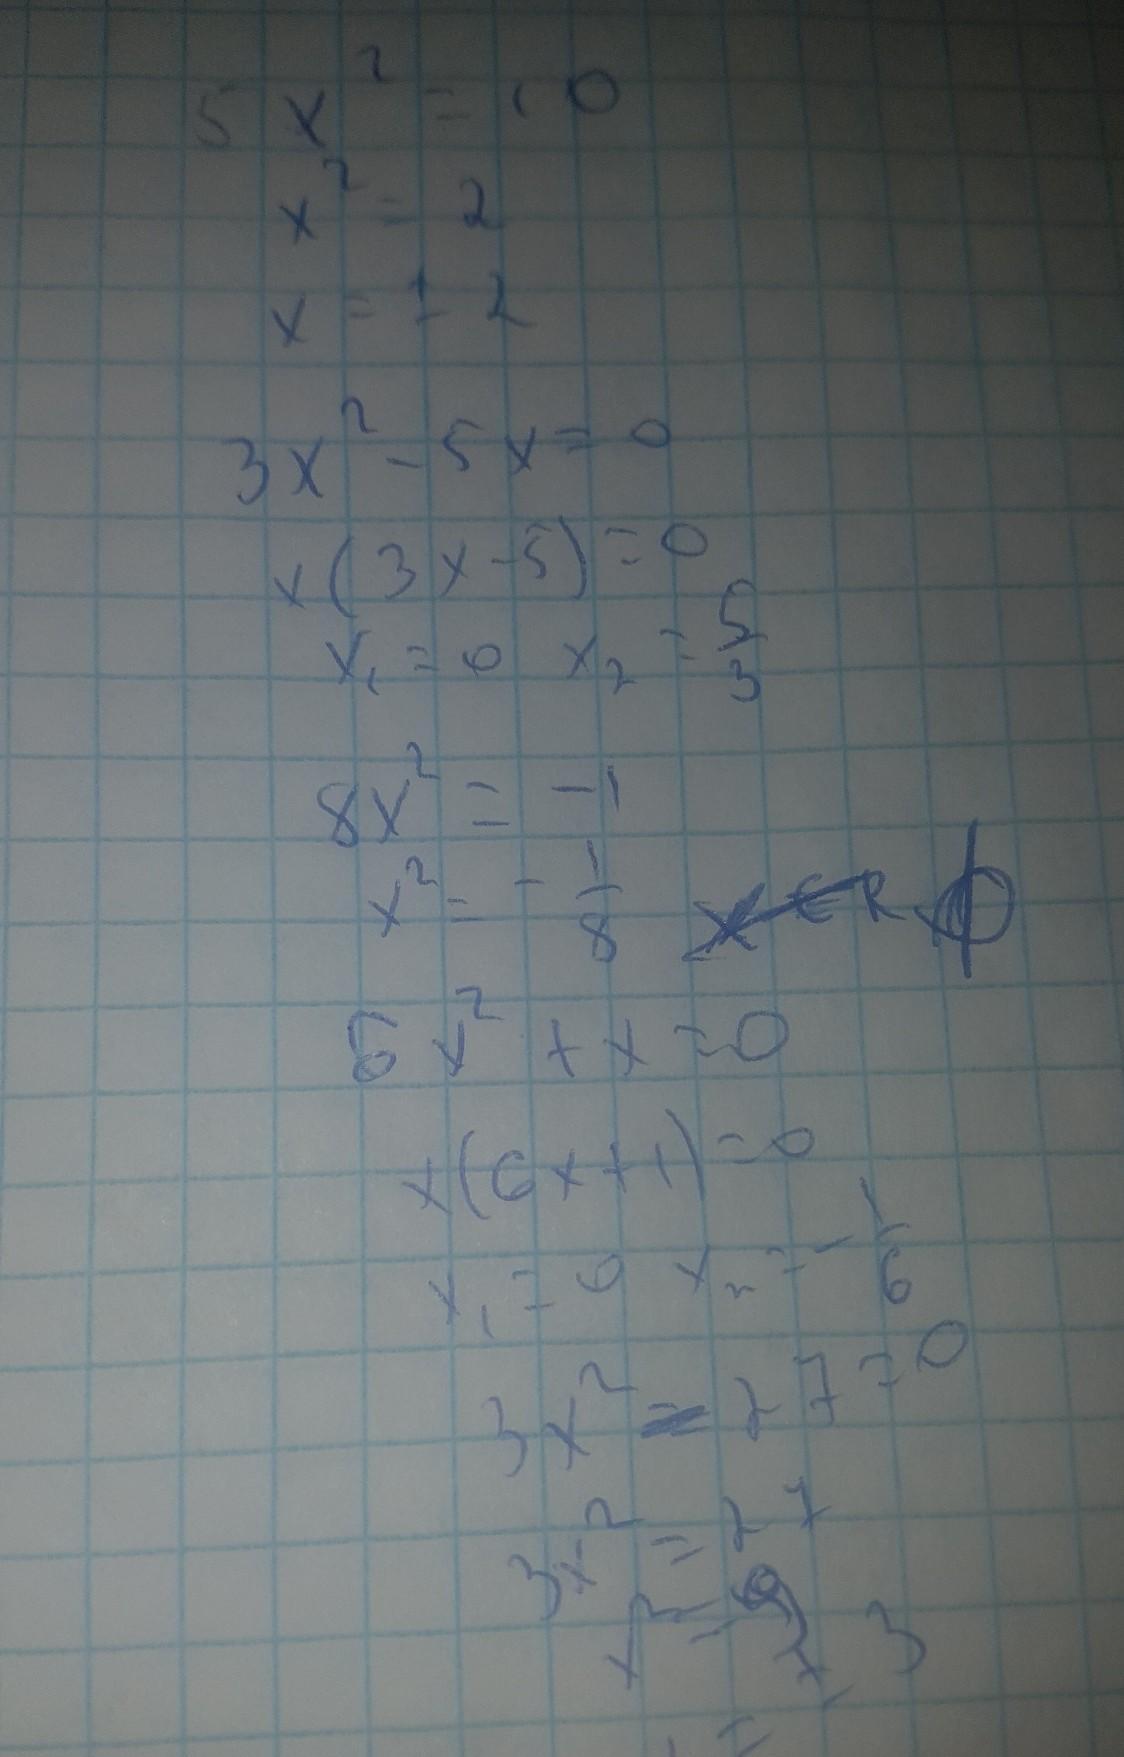 5x² = 10
x² = 2
x = ± 2
3x² - 5x = 0
x(3x-5) = 0
x₁ = 0 x₂ = 5/3
8x² = -1
x² = - 1/8 ∅
6x² + x = 0
x(6x+1) = 0
x₁ = 0 x₂ = - 1/6
3x² - 27 = 0
3x² = 27
x² = 9